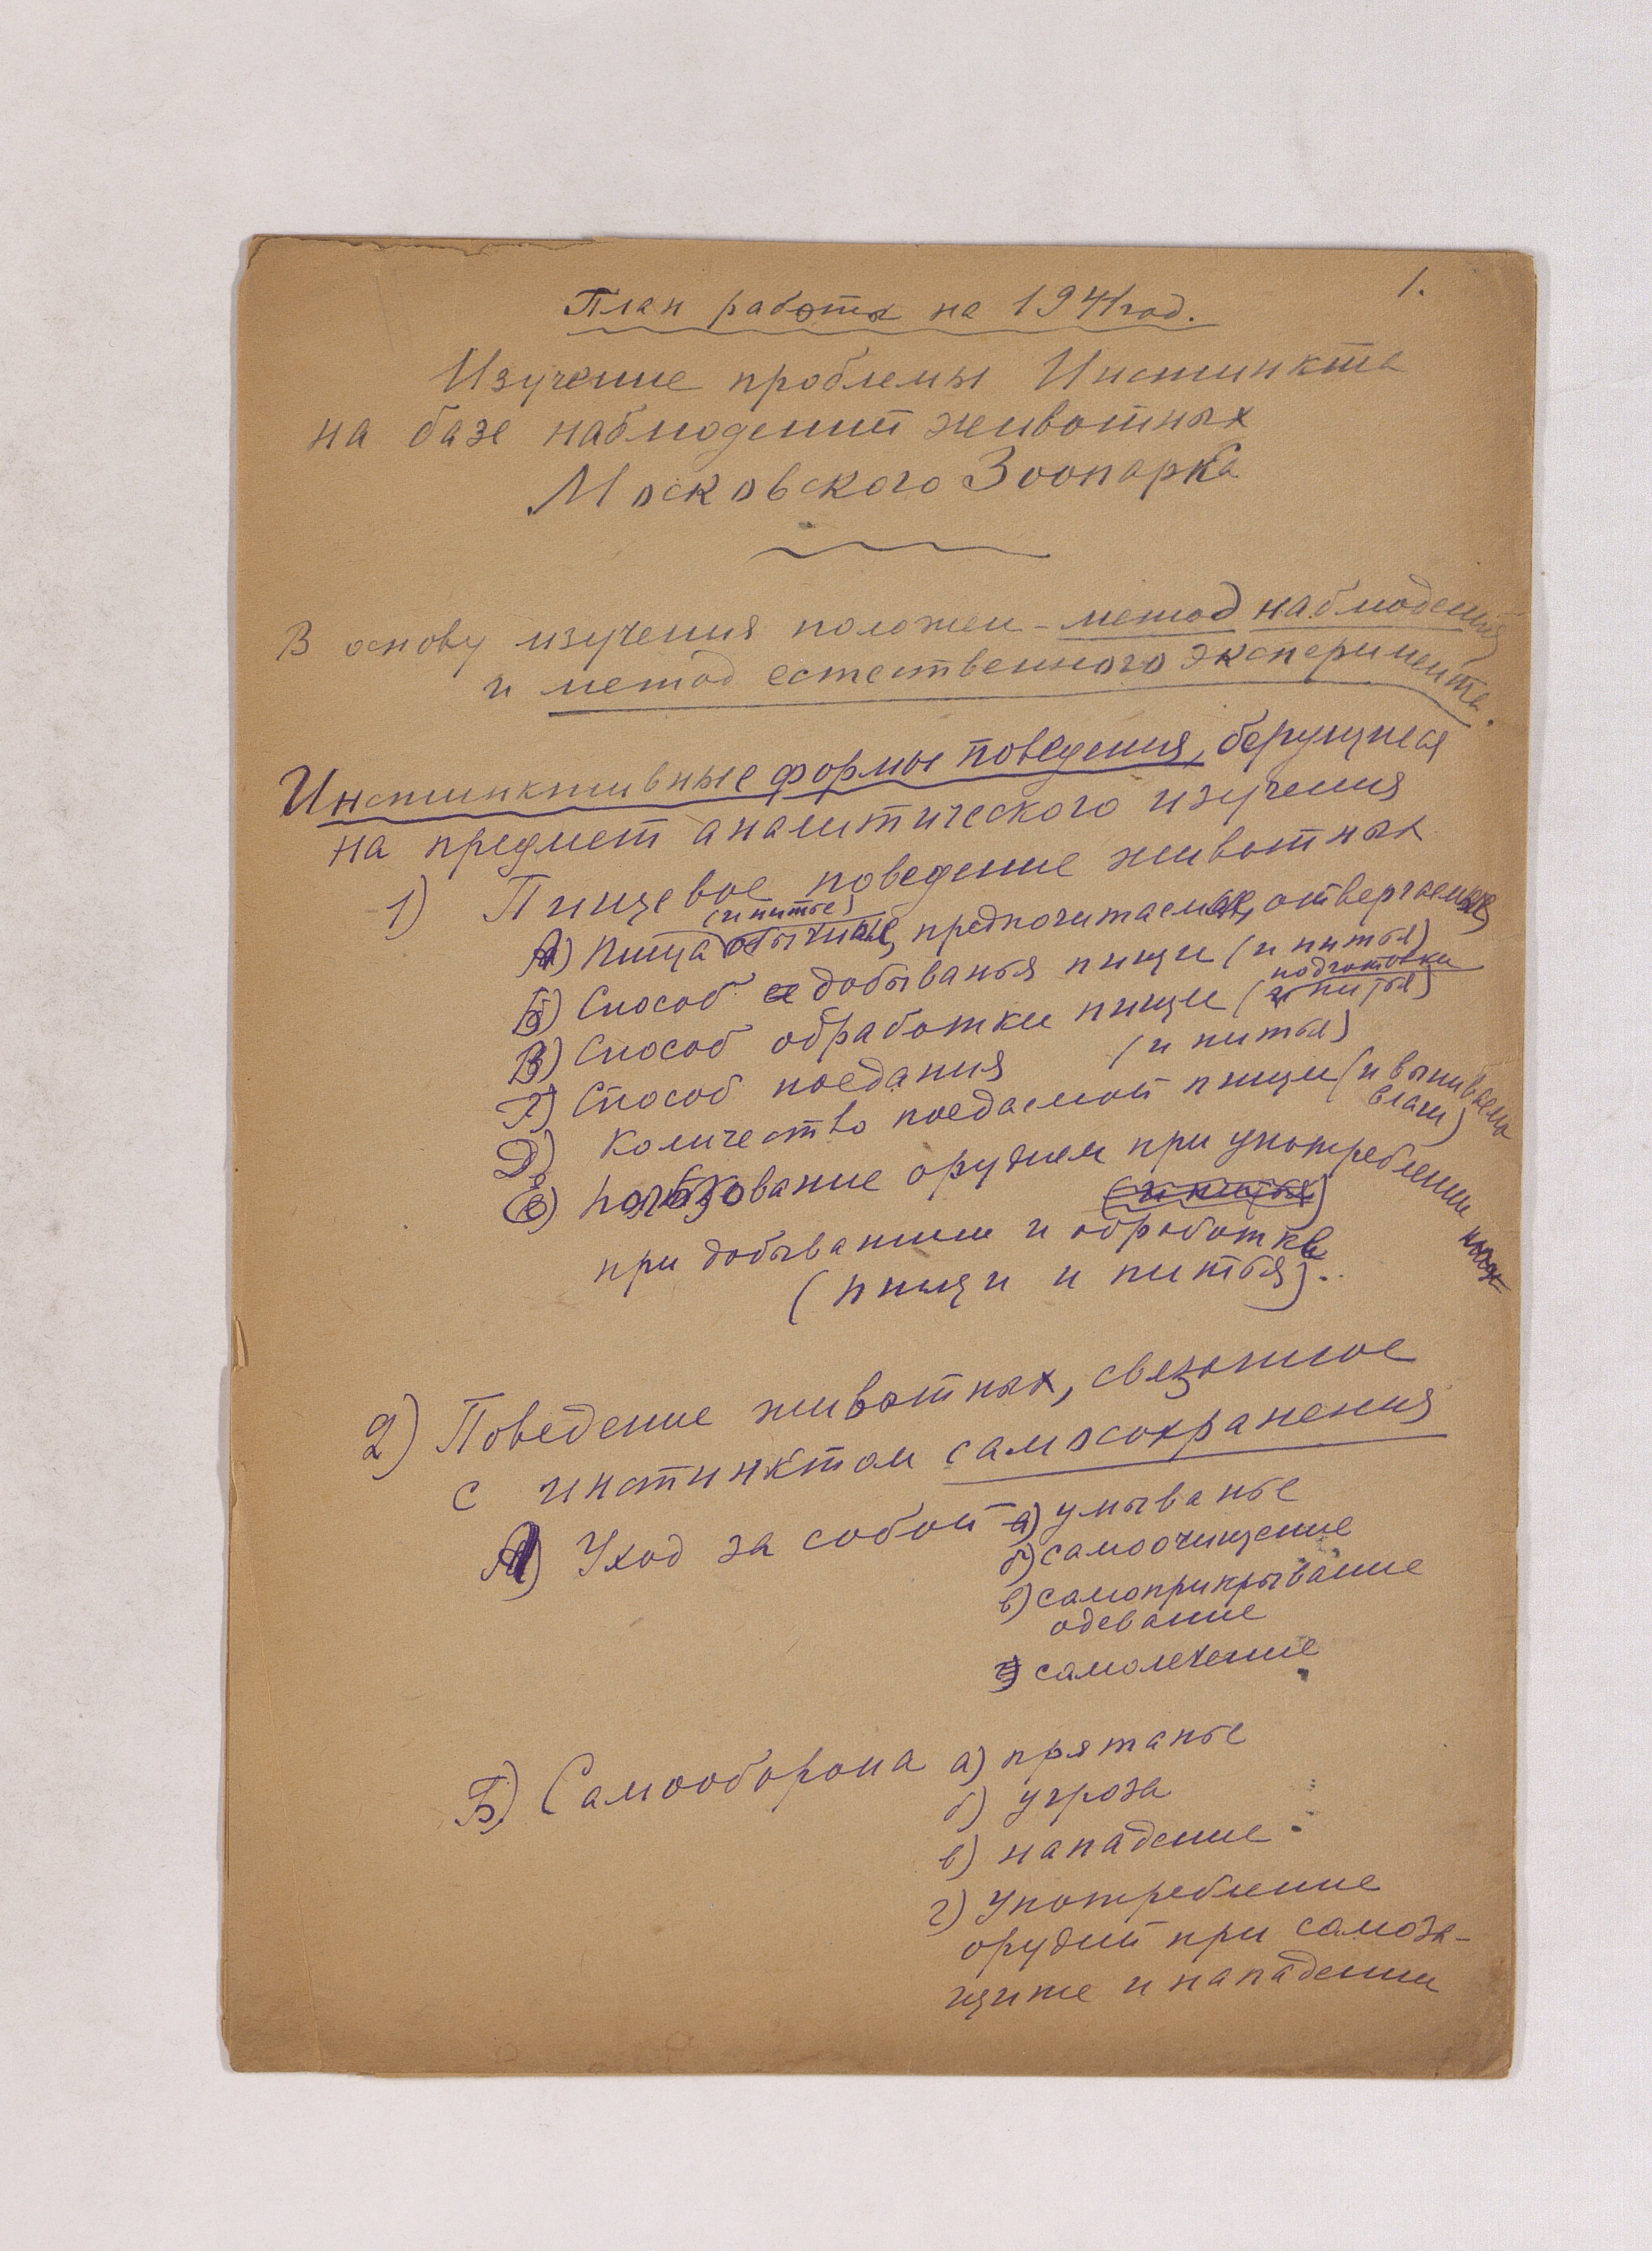 1.
План работы на 1941 год.
Изучение проблемы Инстинкта
на базе наблюдений животных
Московского Зоопарка
В основу изучения положен - метод наблюдения
и метод естественного эксперимента.
Инстинктивные формы поведения, берущиеся
на предмет аналитического изучения
1) Пищевое поведение животных
(и питье)
А) Пища обычная, предпочитаемая, отвергаемая
Б) Способ добыванья пищи (и питья)
подготовки
В) Способ обработки пищи (и питья)
Г) Способ поедания (и питья)
Д) Количество поедаемой пищи (и выпиваемой
влаги)
Е) Пользование орудием при употреблении
(и питья)
при добывании и обработке
(пищи и питья).
2) Поведение животных, связанное
с инстинктом самосохранения
А) Уход за собой а) умыванье
б) самоочищение
в) самоприкрывание
одевание
г) самолечение
Б) Самооборона а) прятанье
б) угроза
в) нападение
г) Употребление
орудий при самоза-
щите и нападении